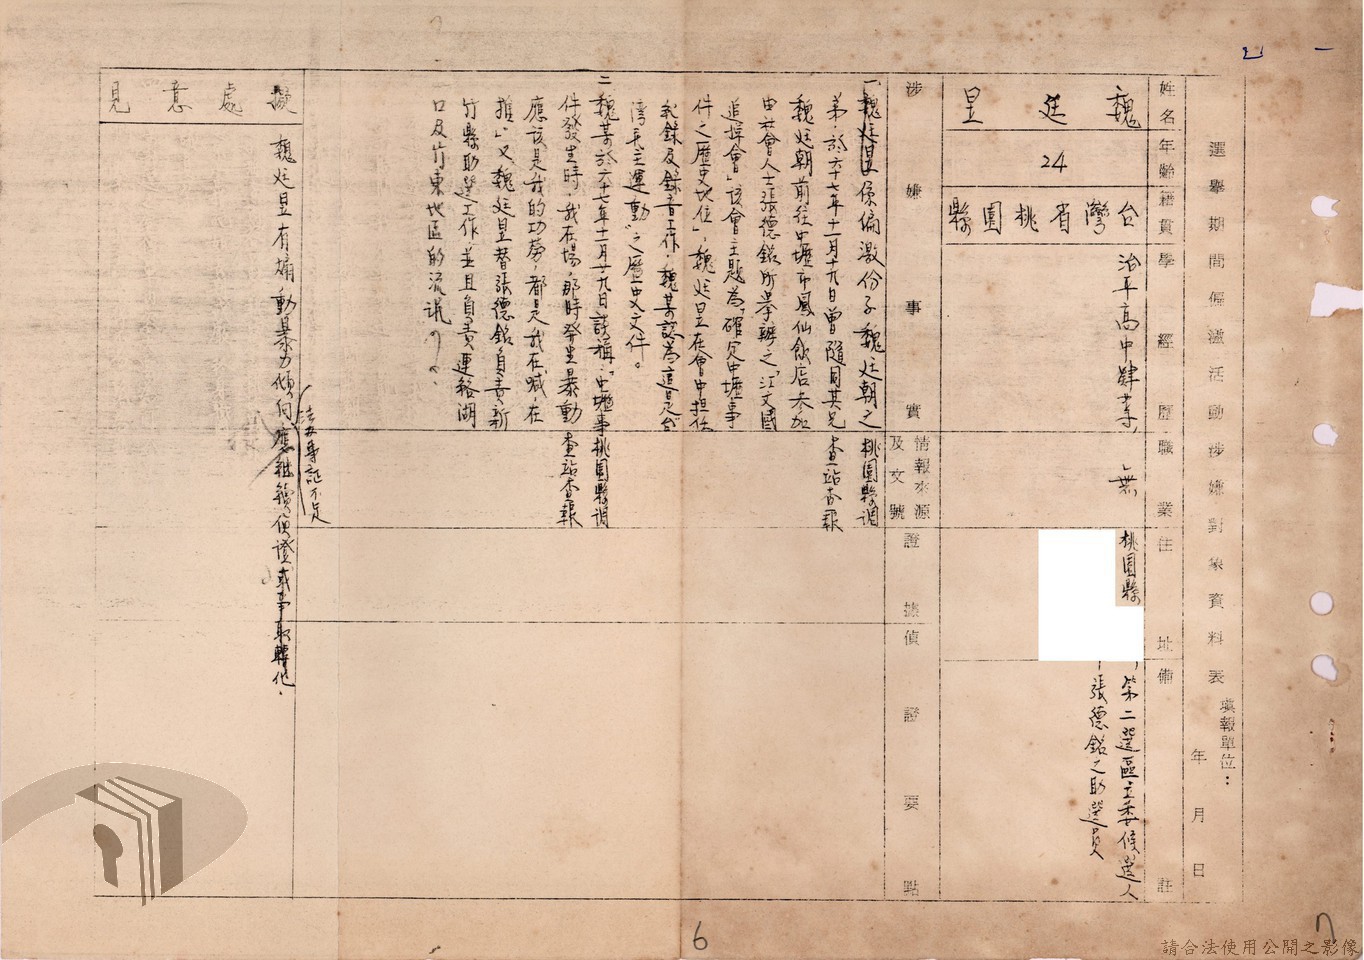 選舉期間偏激活動涉嫌對象資料表
填報單位：
年 月 日
姓名
年齡
籍貫
學經歷
職業
住址
備註
魏廷昱
24
台灣省桃園縣
治平高中肄業
無
桃園縣
第二選區立委候選人
張德銘之助選員
涉嫌事實
情報來源
及文號
證據
偵證要點
一、魏廷昱係偏激份子魏廷朝之
弟，於六十七年十一月十九日曾隨同其兄
魏廷朝前往中壢市鳳仙飯店參加
由社會人士張德銘所舉辦之「江文國
追悼會」該會主題為「確定中壢事
件之歷史地位」，魏廷昱在會中担任
紀錄及錄音工作，魏某認為這是台
灣民主運動之歷史文件。
二、魏某於六十七年十一月廿九日談稱：中壢事
件發生時，我在場，那時發生暴動
應該是我的功勞，都是我在喊，在
推」又魏廷昱替張德銘負責新
竹縣助選工作並且負責連絡湖
口及竹東地區的流氓
桃園縣調
查站查報
桃園縣調
查站查報
擬處意見
魏廷昱有煽動暴力傾向，應繼續偵證或爭取轉化。
證不足
6
7
請合法使用公開之影像